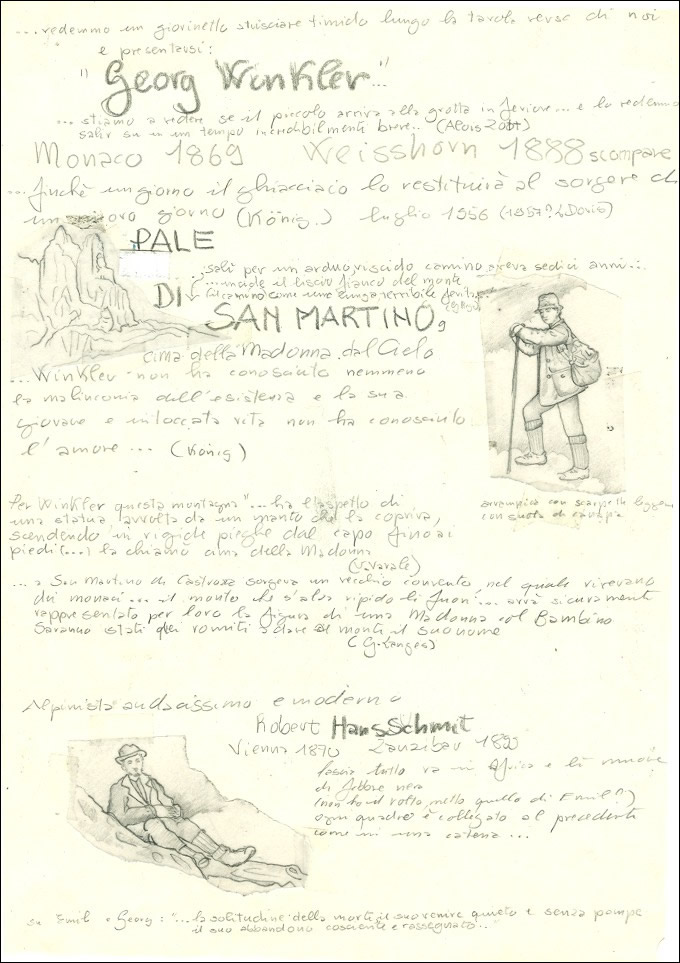 ...vedemmo un giovinetto strisciare timido lungo la tavola verso di noi
e presentarsi:
"Georg Winkler"...
... stiamo a vedere se il piccolo arriva alla grotta inferiore... e lo vedemmo
salir su in un tempo incredibilmente breve.. (Alois Zott)
Monaco 1869 Weisshorn 1888 scompare
... finchè un giorno il ghiacciaio lo restituirà al sorgere di
un nuovo giorno (König.) luglio 1956 (1957? Doris)
PALE
...salì per un arduo, viscido camino, aveva sedici anni...
...incide il liscio fianco del monte
il camino come una lunga terribile ferita..
DI
SAN MARTINO,
cima della Madonna dal Cielo
...Winkler non ha conosciuto nemmeno
la malinconia dell'esistenza e la sua
giovane e intoccata vita non ha conosciuto
l'amore... (König)
arrampica con scarpette leggere
con suola di canapa
Per Winkler questa montagna "...ha l'aspetto di
una statua, avvolta da un manto che la copriva,
scendendo in rigide pieghe dal capo fino ai
piedi (...) la chiamò cima della Madonna
(V. Varale)
...a San Martino di Castrozza sorgeva un vecchio convento nel quale vivevano
dei monaci... il monte che s'alza ripido lì fuori... avrà sicuramente
rappresentato per loro la figura di una Madonna col Bambino
Saranno stati quei romiti a dare al monte il suo nome
(G. Langes)
Alpinista audacissimo e moderno
Robert HansSchmit
Vienna 1870 Zanzibar 1899
lascia tutto va in Africa e lì muore
di febbre nera
(non ho il volto, metto quello di Emil!)
ogni quadro è collegato al precedente
come in una catena...
su Emil e Georg: "...la solitudine della morte, il suo venire quieto e senza pompe
il suo abbandono cosciente e rassegnato..."